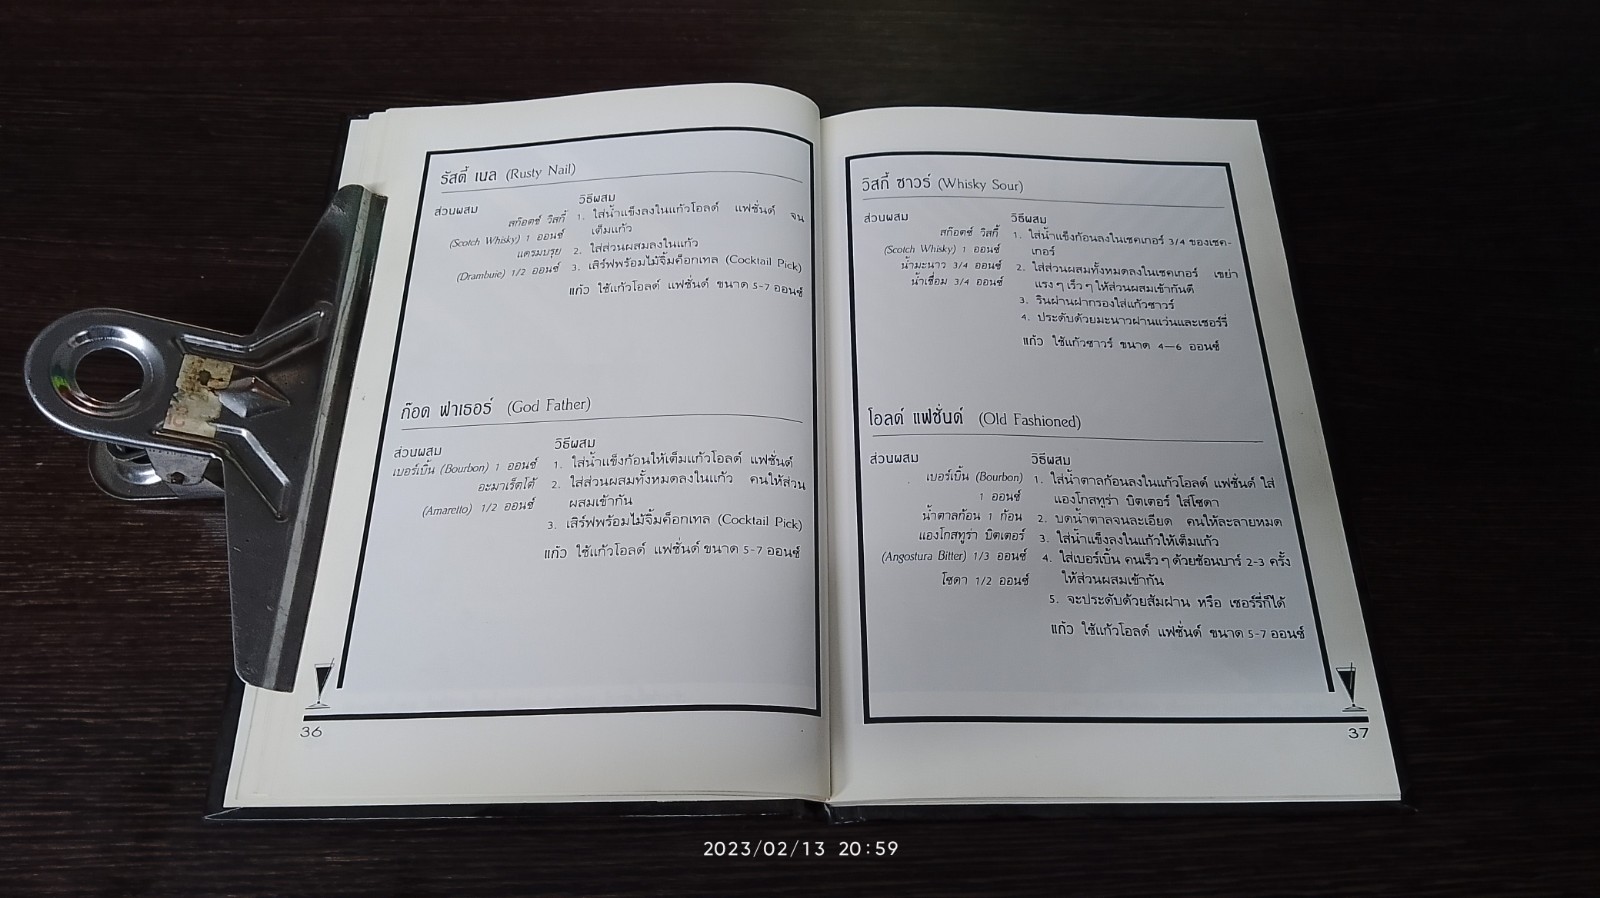 รัสตี้ เนล (Rusty Nail)
ส่วนผสม
สก๊อตช์ วิสกี้
(Scotch Whisky) 1 ออนซ์
แดรมบรุย
(Drambuie) 1/2 ออนซ์
วิธีผสม
1. ใส่น้ำแข็งลงในแก้วโอลด์ แฟชั่นด์ จน
เต็มแก้ว
2. ใส่ส่วนผสมลงในแก้ว
3. เสิร์ฟพร้อมไม้จิ้มค็อกเทล (Cocktail Pick)
แก้ว ใช้แก้วโอลด์ แฟชั่นด์ ขนาด 5-7 ออนซ์
ก๊อด ฟาเธอร์ (God Father)
ส่วนผสม
เบอร์เบิ้น (Bourbon) 1 ออนซ์
อะมาเร็ตโต้
(Amaretto) 1/2 ออนซ์
วิธีผสม
1. ใส่น้ำแข็งก้อนให้เต็มแก้วโอลด์ แฟชั่นด์
2. ใส่ส่วนผสมทั้งหมดลงในแก้ว คนให้ส่วน
ผสมเข้ากัน
3. เสิร์ฟพร้อมไม้จิ้มค็อกเทล (Cocktail Pick)
แก้ว ใช้แก้วโอลด์ แฟชั่นด์ ขนาด 5-7 ออนซ์
36
วิสกี้ ซาวร์ (Whisky Sour)
ส่วนผสม
สก๊อตช์ วิสกี้
(Scotch Whisky) 1 ออนซ์
น้ำมะนาว 3/4 ออนซ์
น้ำเชื่อม 3/4 ออนซ์
วิธีผสม
1. ใส่น้ำแข็งก้อนลงในเชคเกอร์ 3/4 ของเชค-
เกอร์
2. ใส่ส่วนผสมทั้งหมดลงในเชคเกอร์ เขย่า
แรง ๆ เร็ว ๆ ให้ส่วนผสมเข้ากันดี
3. รินผ่านฝากรองใส่แก้วซาวร์
4. ประดับด้วยมะนาวฝานแว่นและเชอร์รี่
แก้ว ใช้แก้วซาวร์ ขนาด 4—6 ออนซ์
โอลด์ แฟชั่นด์ (Old Fashioned)
ส่วนผสม
เบอร์เบิ้น (Bourbon)
1 ออนซ์
น้ำตาลก้อน 1 ก้อน
แองโกสทูร่า บิตเตอร์
(Angostura Bitter) 1/3 ออนซ์
โซดา 1/2 ออนซ์
วิธีผสม
1. ใส่น้ำตาลก้อนลงในแก้วโอลด์ แฟชั่นด์ ใส่
แองโกสทูร่า บิตเตอร์ ใส่โซดา
2. บดน้ำตาลจนละเอียด คนให้ละลายหมด
3. ใส่น้ำแข็งลงในแก้วให้เต็มแก้ว
4. ใส่เบอร์เบิ้น คนเร็ว ๆ ด้วยช้อนบาร์ 2-3 ครั้ง
ให้ส่วนผสมเข้ากัน
5. จะประดับด้วยส้มฝาน หรือ เชอร์รี่ก็ได้
แก้ว ใช้แก้วโอลด์ แฟชั่นด์ ขนาด 5-7 ออนซ์
37
2023/02/13 20:59